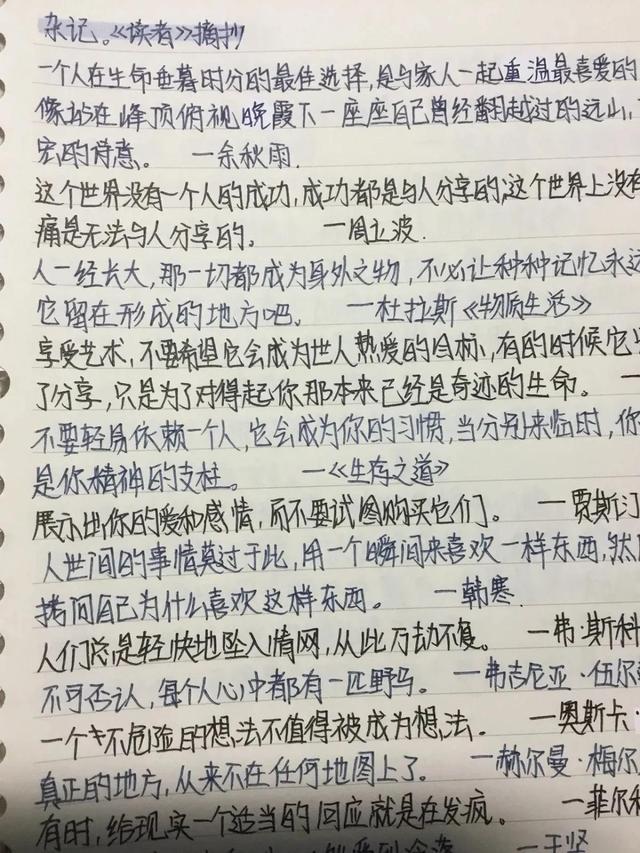 杂记。《读者》摘抄
一个人在生命垂暮时分的最佳选择,是与家人一起重温最喜爱的
像站在峰顶俯视晚霞下一座座自己曾经翻越过的远山,
宏的诗意。 —余秋雨.
这个世界没有一个人的成功,成功都是与人分享的;这个世界上没有
痛是无法与人分享的。 —周立波.
人一经长大,那一切都成为身外之物,不必让种种记忆永远
它留在形成的地方吧。 —杜拉斯《物质生活》
享受艺术,不要希望它会成为世人热爱的目标,有的时候它
了分享,只是为了对得起你那本来已经是奇迹的生命。 —
不要轻易依赖一个人,它会成为你的习惯,当分别来临时,你
是你精神的支柱。 —《生存之道》
展示出你的爱和感情,而不要试图购买它们。 —贾斯汀
人世间的事情莫过于此,用一个瞬间来喜欢一样东西,然
拷问自己为什么喜欢这样东西。 —韩寒.
人们总是轻快地坠入情网,从此万劫不复。 —弗·斯科
不可否认,每个人心中都有一匹野马。 —弗吉尼亚·伍尔
一个不危险的想法不值得被成为想法。 —奥斯卡·
真正的地方,从来不在任何地图上了。 —赫尔曼·梅尔
有时,给现实一个适当的回应就是在发疯。 —菲尔
—于坚